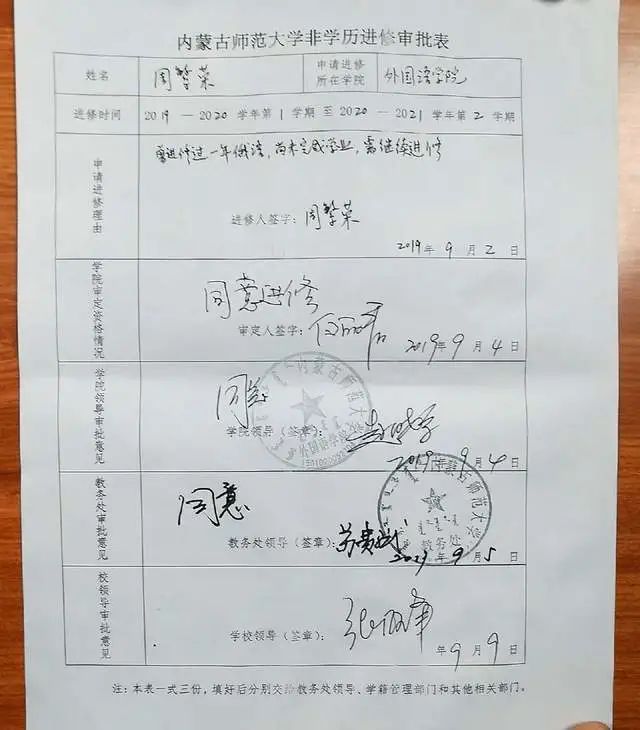 内蒙古师范大学非学历进修审批表
姓名 周繁荣 申请进修所在学院 外国语学院
进修时间 2019 — 2020 学年第 1 学期 至 2020 — 2021 学年第 2 学期
申请进修理由
曾进修过一年俄语，尚未完成学业，需继续进修
进修人签字：周繁荣
2019年 9 月 2 日
学院审定资格情况
同意进修
审定人签字：
2019年 9 月 4 日
学院领导审批意见
同意
学院领导（签章）：
2019年 9 月 4 日
内蒙古师范大学外国语学院
教务处审批意见
同意
教务处领导（签章）：
2019年 9 月 5 日
内蒙古师范大学
教务处
校领导审批意见
学校领导（签章）：
年 9 月 9 日
注：本表一式三份，填好后分别交给教务处领导、学籍管理部门和其他相关部门。